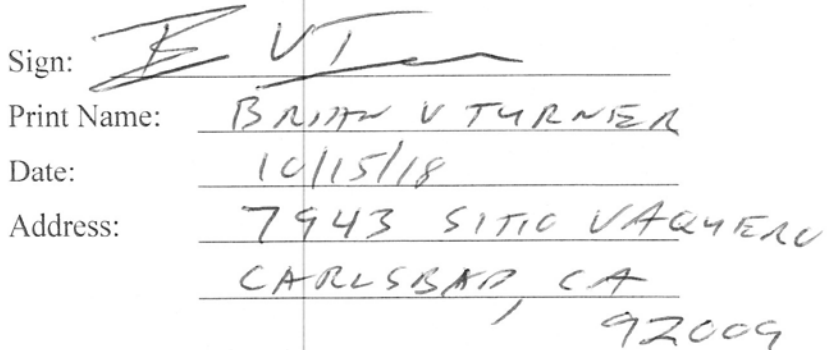 Sign: B V T
Print Name: BRIAN V TURNER
Date: 10/15/18
Address: 7943 SITIO VAQUERO
CARLSBAD, CA
92009